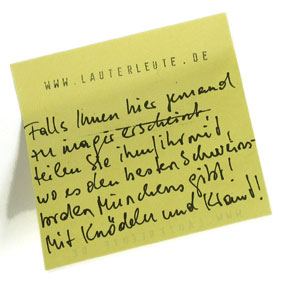 WWW.LAUTERLEUTE.DE
Falls Ihnen hier jemand
zu mager erscheint
teilen Sie ihm/ihr mit,
wo es den besten Schweins-
braten Münchens gibt!
Mit Knödeln und Kraut!